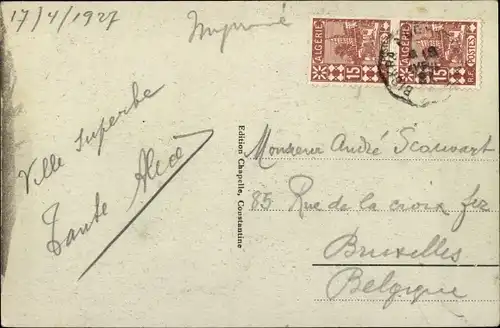 17/4/1927
Imprimé
ALGÉRIE ALGÉRIE
15 15
POSTES
R.F.
Ville superbe
Tante Alice
Edition Chapelle, Constantine
Monsieur André Scauvart
85 Rue de la croix fer
Bruxelles
Belgique